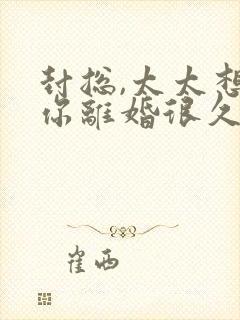 封总,太太想
你離婚很久
崔西